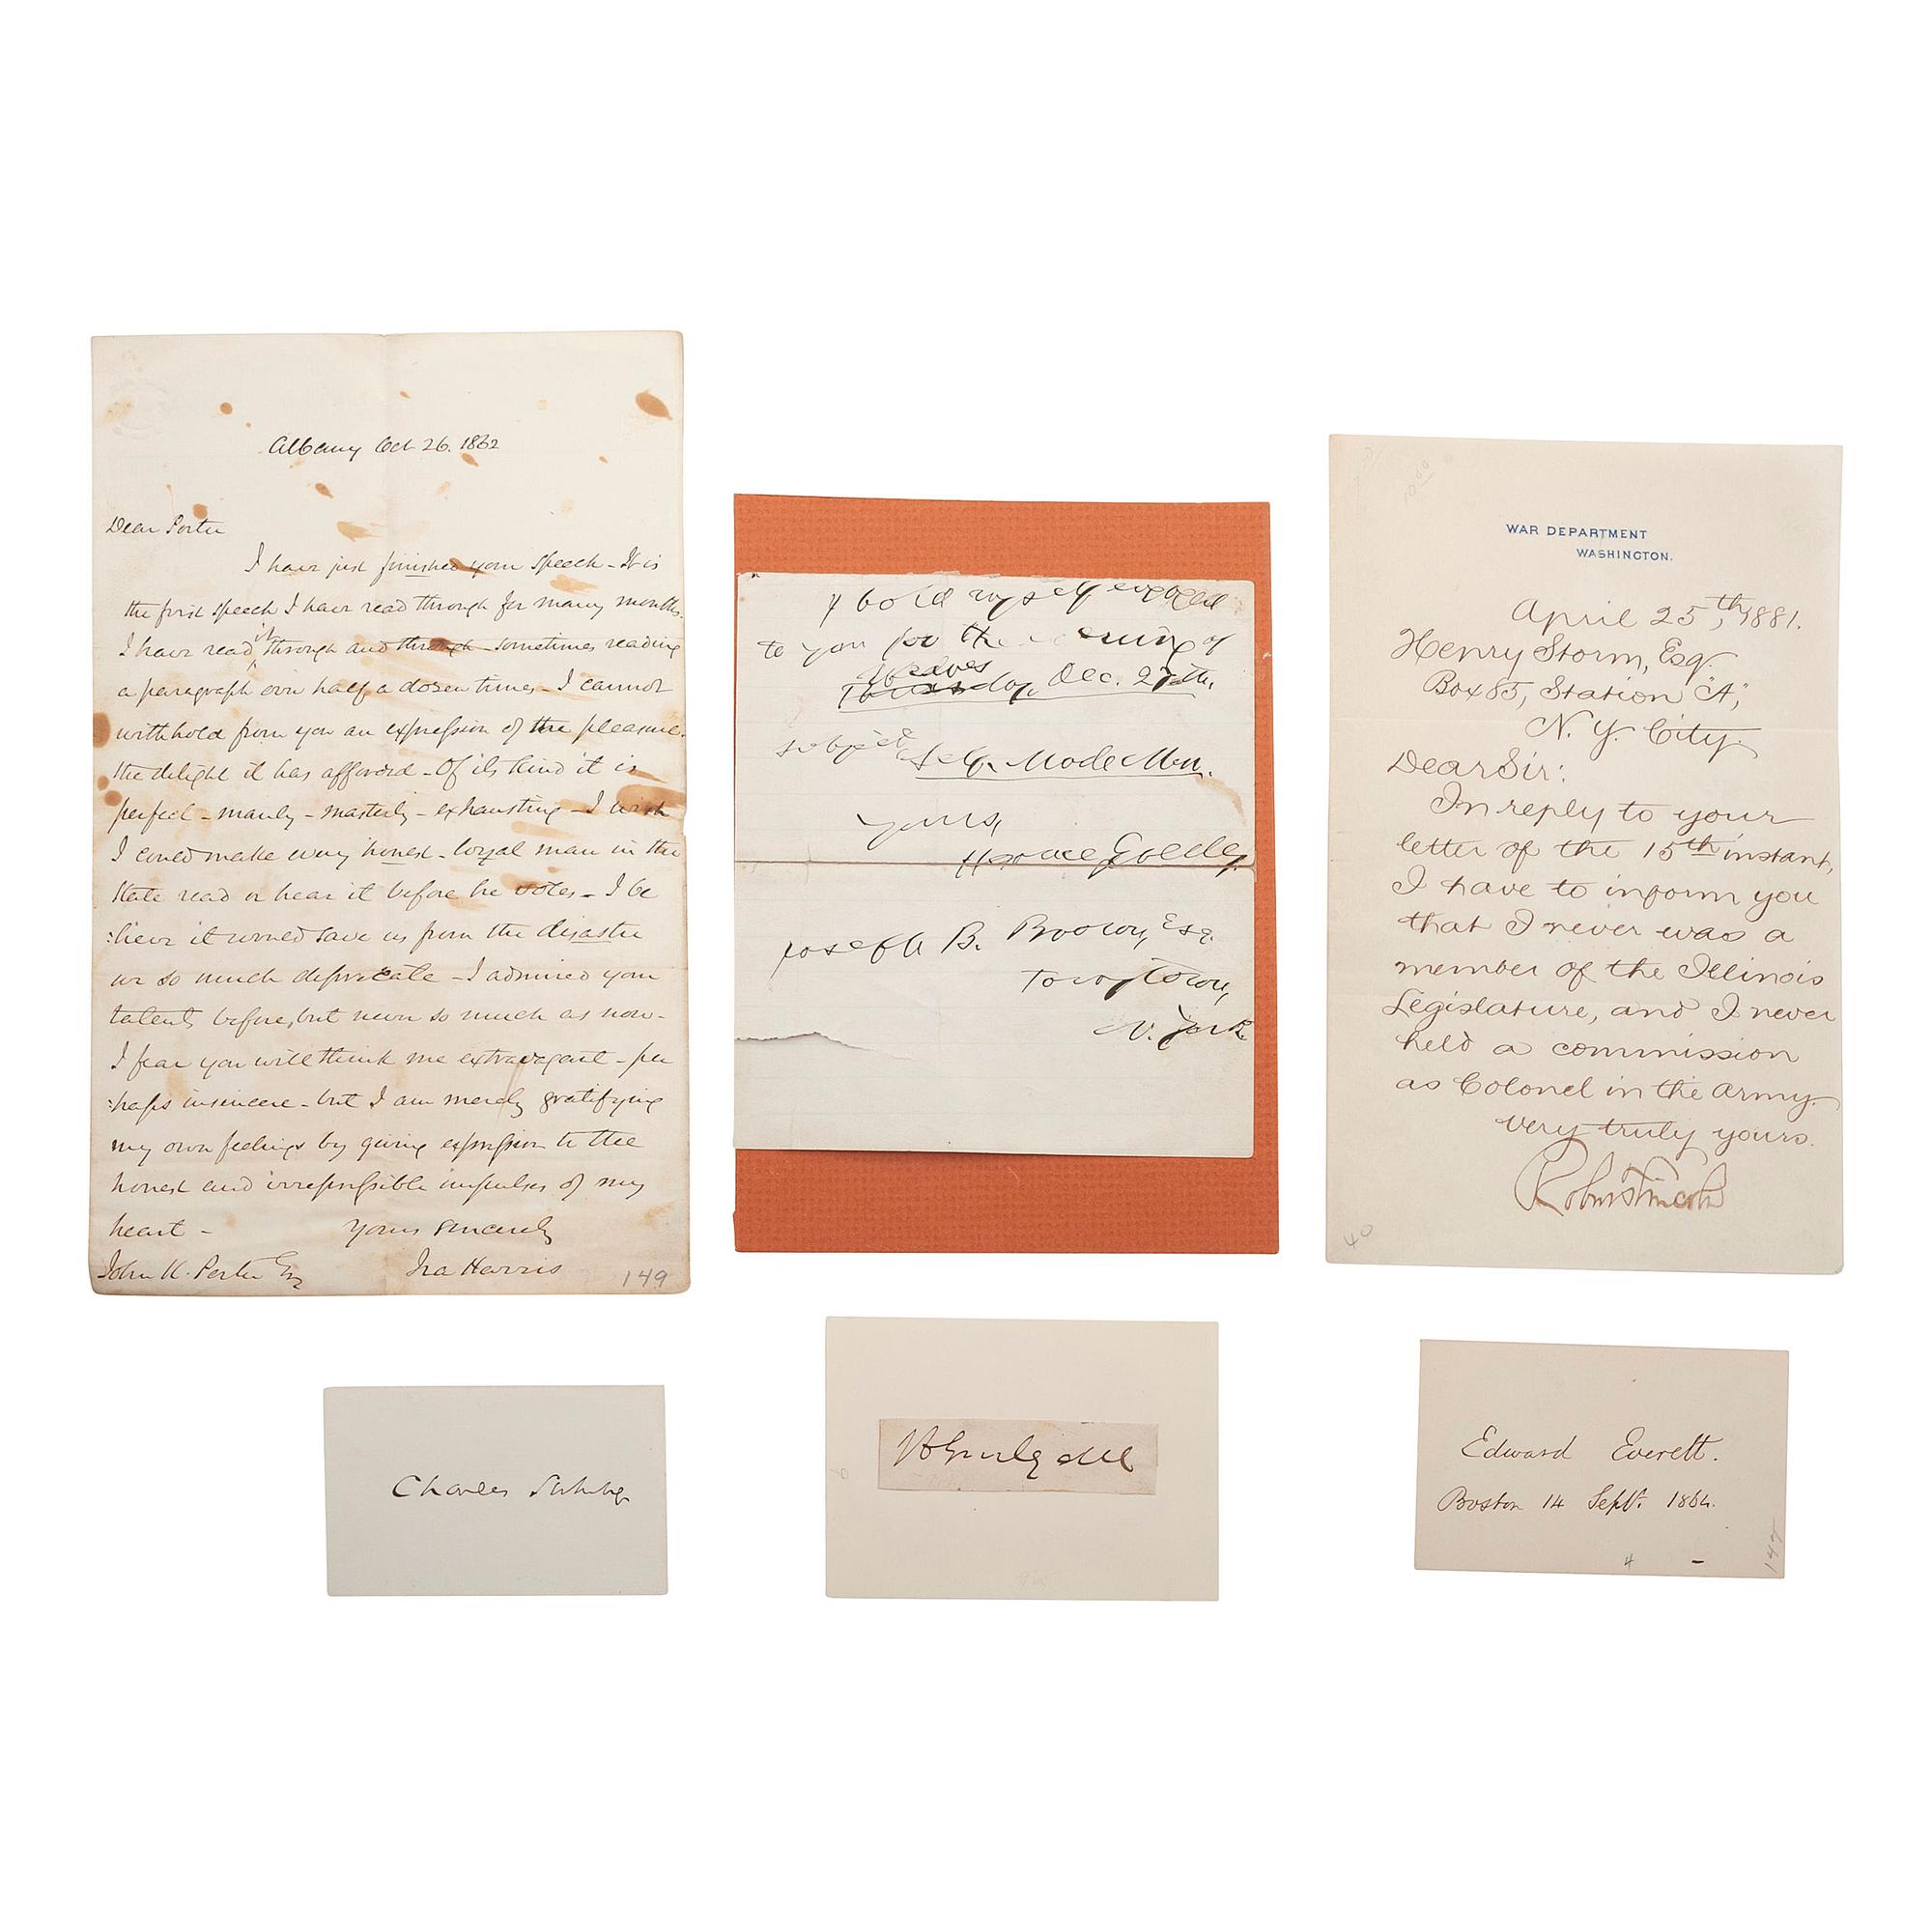 Albany Oct 26. 1862
Dear Porter
I have just finished your speech - It is
the first speech I have read through for many months.
I have read it through and through sometimes reading
a paragraph over half a dozen times - I cannot
withhold from you an expression of the pleasure -
the delight it has afforded - Of its kind it is
perfect - manly - masterly - exhausting - I wish
I could make every honest - loyal man in the
State read or hear it before he votes - I be
:lieve it would save us from the disaster
we so much deprecate - I admired your
talents before, but never so much as now -
I fear you will think me extravagant - per
:haps insincere - but I am merely gratifying
my own feelings by giving expression to the
honest and irrepressible impulses of my
heart - Yours sincerely
John K. Porter Esq Ira Harris
149
I hold myself engaged
to you for the evening of
Wednes
Thursday, Dec. 27th.
subject Self-Made Men.
Yours,
Horace Greeley.
Joseph B. Brown, Esq.
Tarrytown,
N. York
WAR DEPARTMENT
WASHINGTON.
April 25th, 1881.
Henry Storm, Esq.
Box 85, Station "A",
N. Y. City.
Dear Sir:
In reply to your
letter of the 15th instant,
I have to inform you
that I never was a
member of the Illinois
Legislature, and I never
held a commission
as Colonel in the Army.
Very truly yours.
Robert T. Lincoln
40
Charles
Edward Everett.
Boston 14 Sept. 1864.
4 -
149